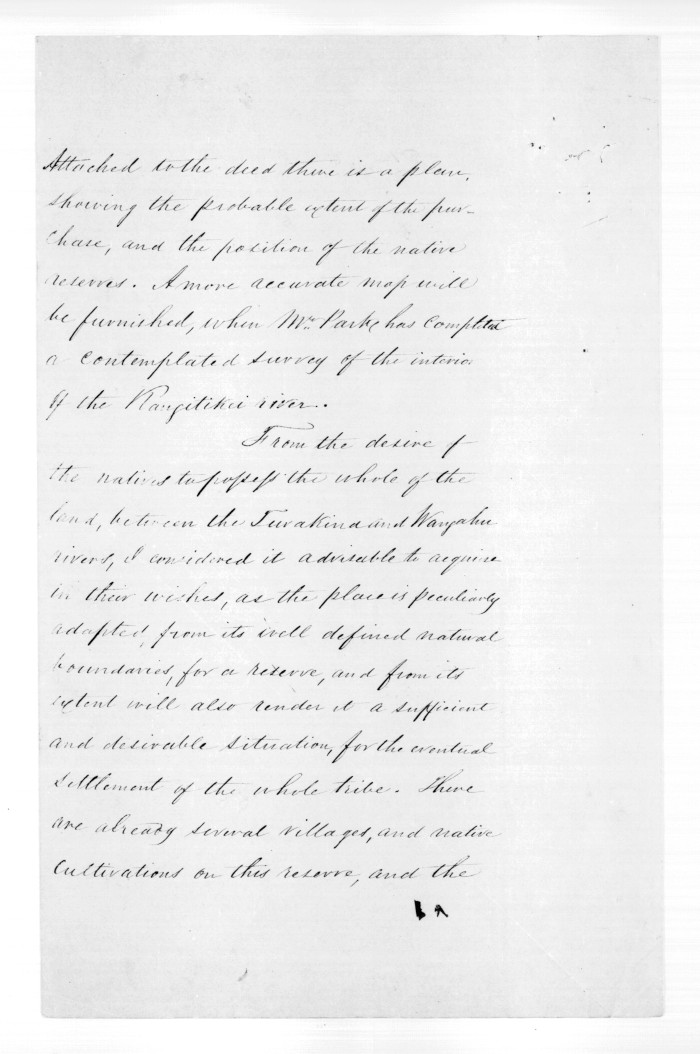 Attached to the deed there is a plan,
showing the probable extent of the pur-
chase, and the position of the native
reserves. A more accurate map will
be furnished, when Mr. Park has completed
a contemplated survey of the interior
of the Rangitikei river.
From the desire of
the natives to possess the whole of the
land, between the Turakina and Wangahu
rivers, I considered it advisable to acquire
in their wishes, as the place is peculiarly
adapted, from its well defined natural
boundaries, for a reserve, and from its
extent will also render it a sufficient
and desirable situation, for the eventual
settlement of the whole tribe. There
are already several villages, and native
cultivations on this reserve, and the